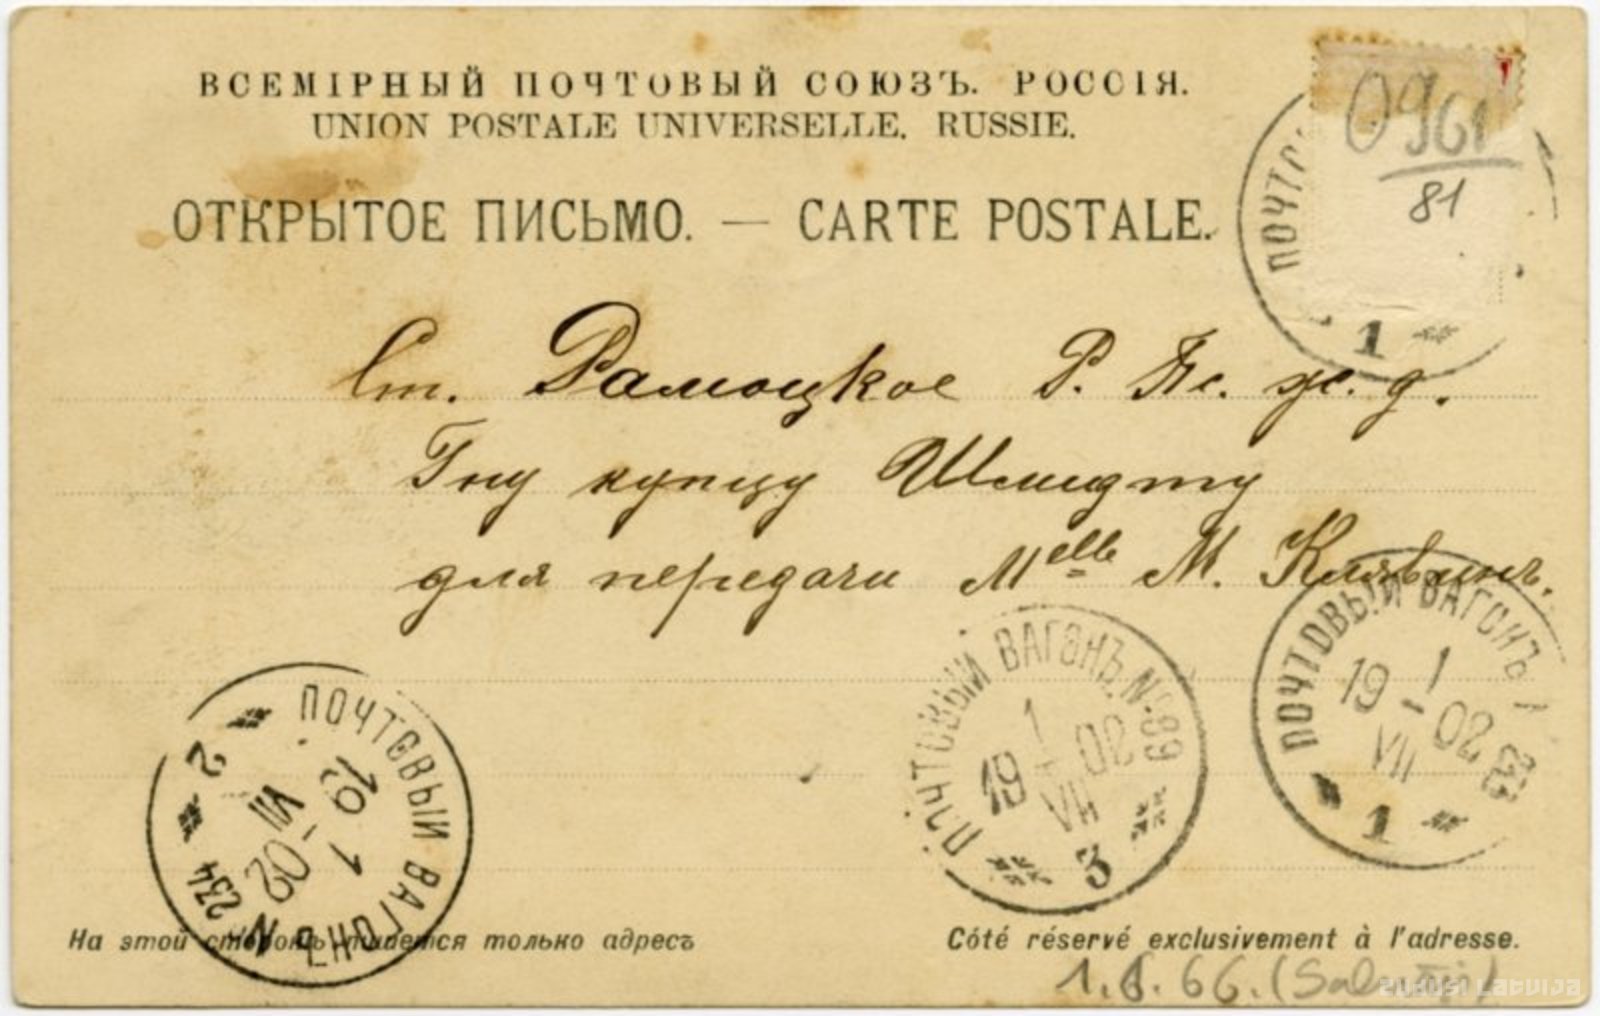 ВСЕМІРНЫЙ ПОЧТОВЫЙ СОЮЗЪ. РОССІЯ.
UNION POSTALE UNIVERSELLE. RUSSIE.
ОТКРЫТОЕ ПИСЬМО. — CARTE POSTALE.
0961
81
1
Ст. Рамоцкое Р. Пс. ж. д.
Гну купцу Шмидту
для передачи Melle М. Клявинь.
ПОЧТОВЫЙ ВАГОНЪ N 234
19 1 VII 02
2
ПОЧТОВЫЙ ВАГОНЪ № 89
19 1 VII 02
3
ПОЧТОВЫЙ ВАГОНЪ
19 1 VII 02
1
На этой сторонѣ пишется только адресъ
Côté réservé exclusivement à l'adresse.
zudusi latvija